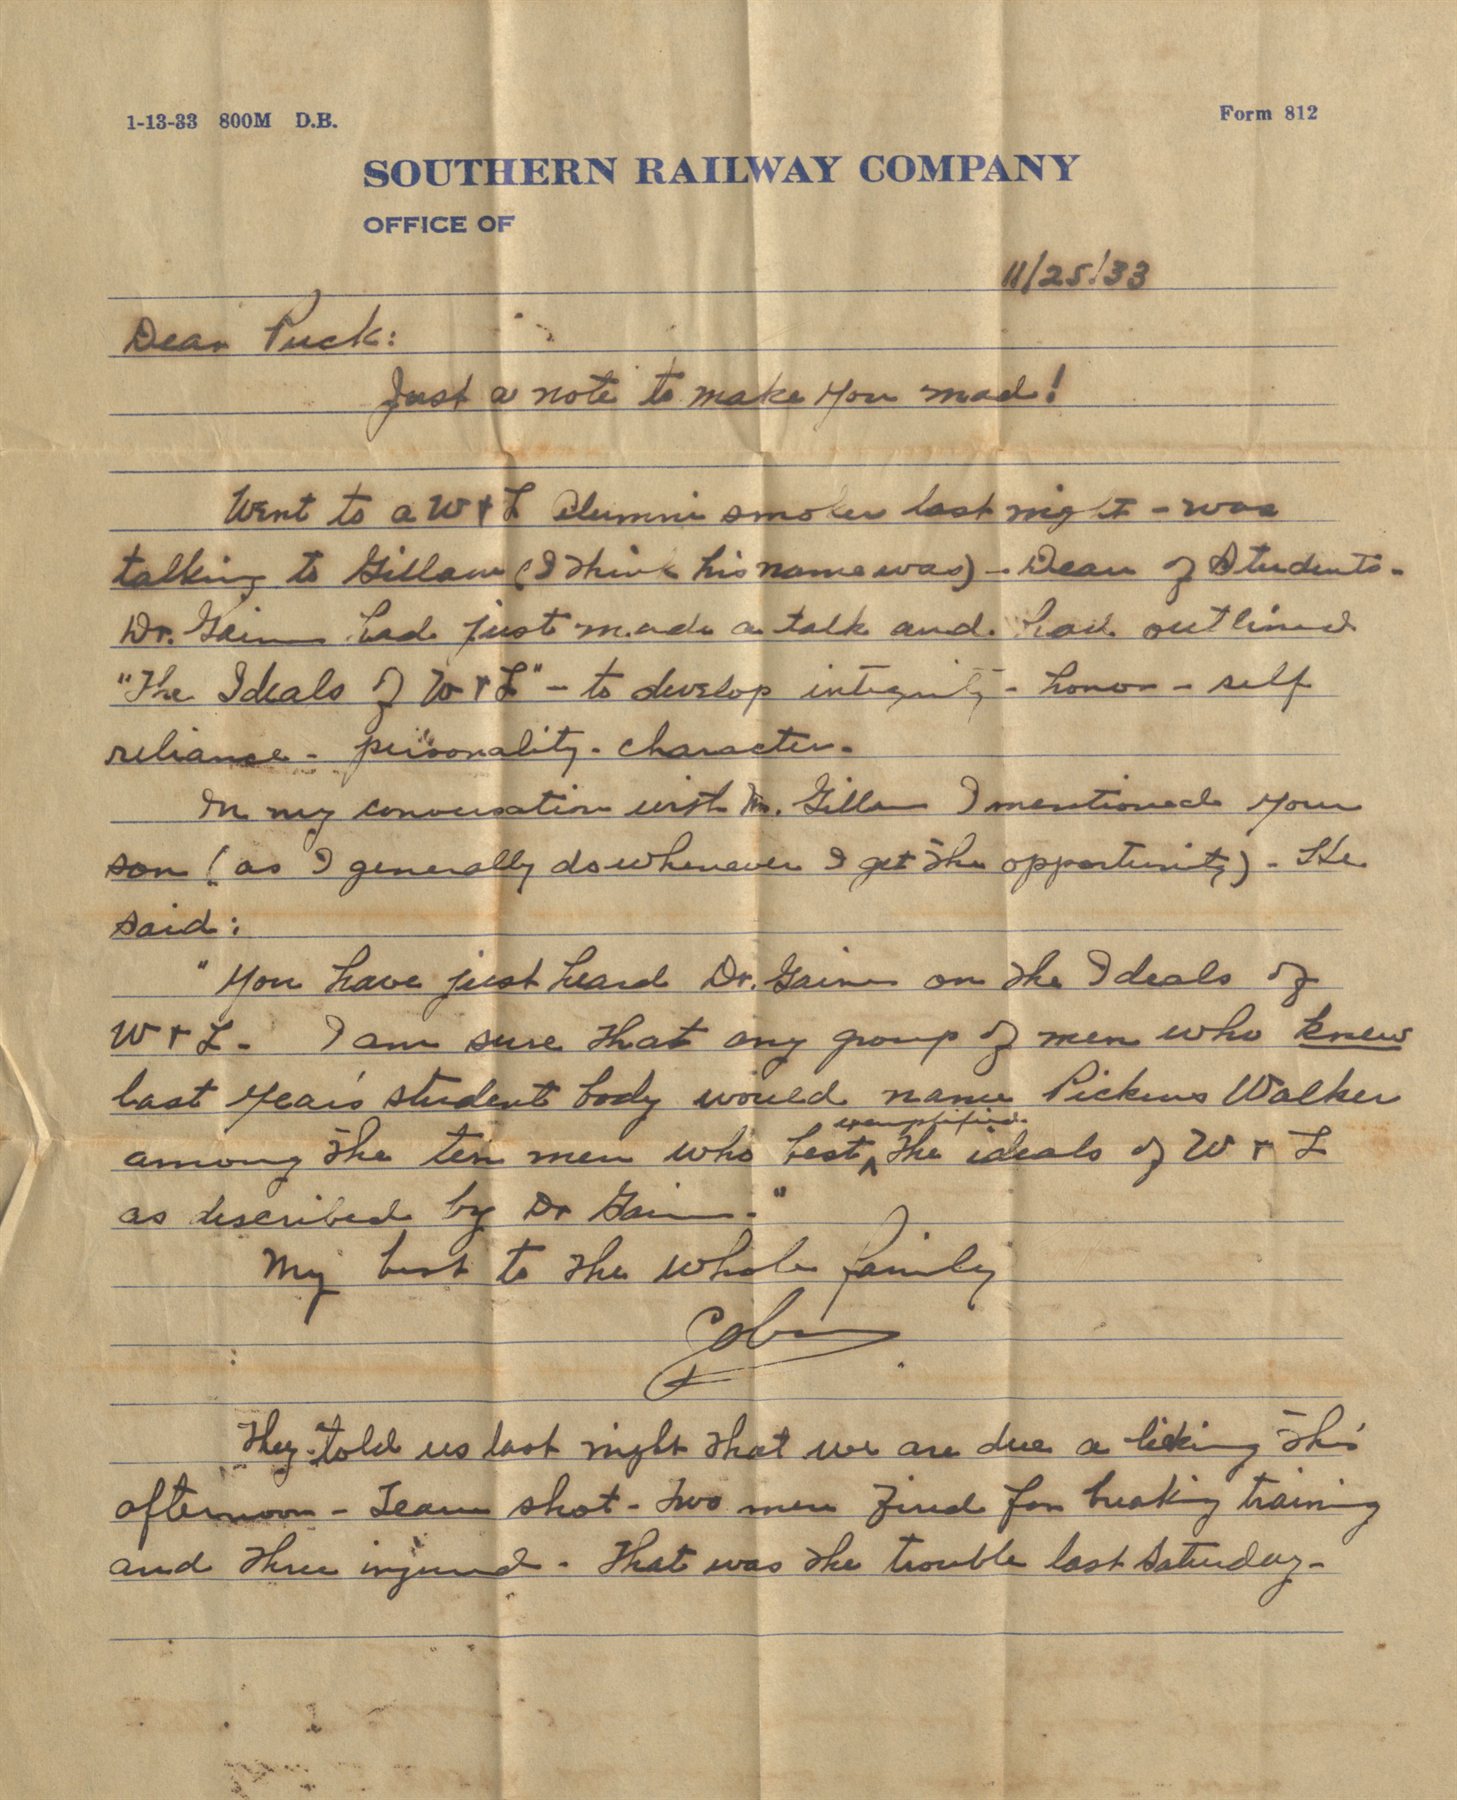 1-13-33 800M D.B.
Form 812
SOUTHERN RAILWAY COMPANY
OFFICE OF
11/25/33
Dear Puck:
Just a note to make you mad!
Went to a W & L Alumni smoker last night - was
talking to Gillam (I think his name was) - Dean of Students -
Dr. Gaines had just made a talk and had outlined
"The Ideals of W & L" - to develop integrity - honor - self
reliance - personality - character -
In my conversation with Mr. Gillam I mentioned your
son (as I generally do whenever I get the opportunity) - He
said:
"You have just heard Dr. Gaines on the Ideals of
W & L - I am sure that any group of men who knew
last year's student body would name Pickens Walker
exemplified
among the ten men who best ^ the ideals of W & L
as described by Dr Gaines."
My best to the whole family
They told us last night that we are due a licking this
afternoon - Team shot - two men fired for breaking training
and three injured - That was the trouble last Saturday -